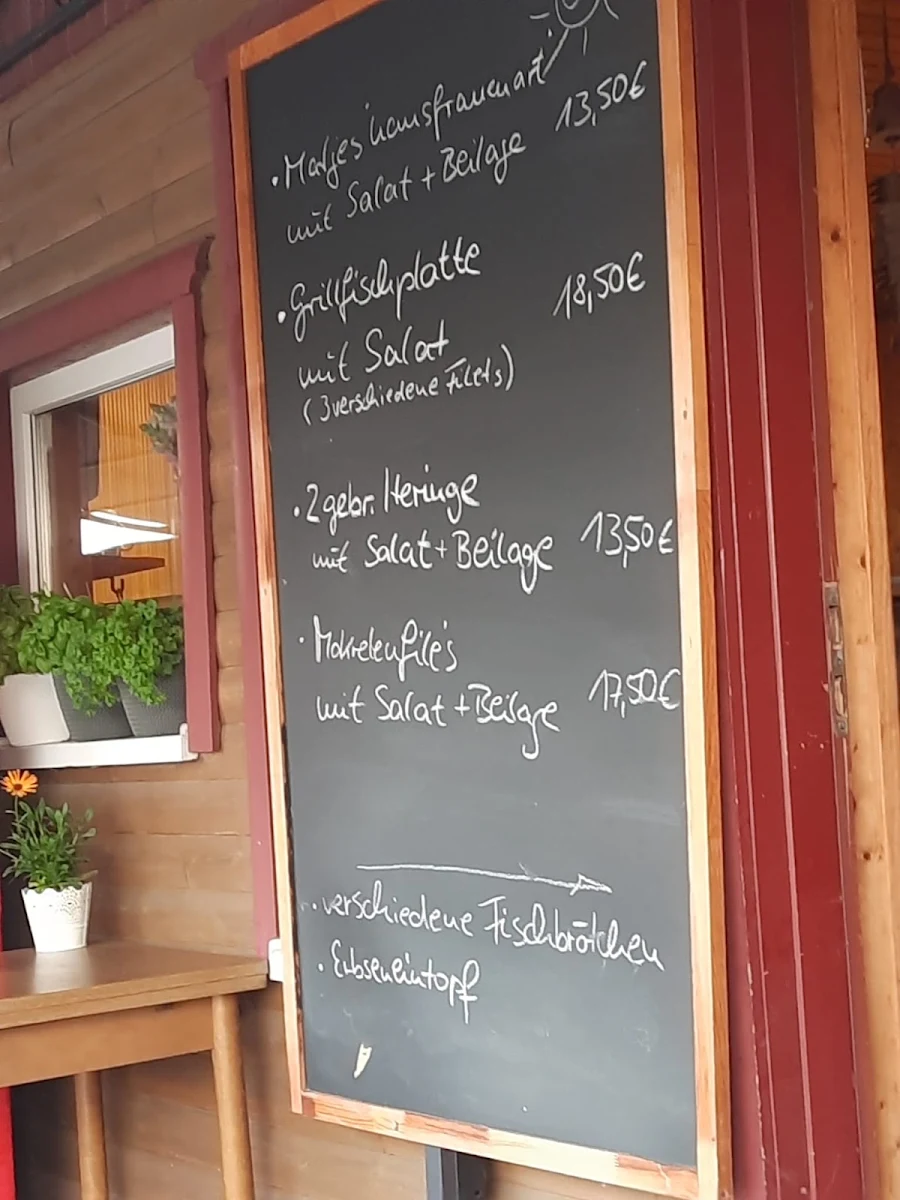 • Matjes hausfrauenart
mit Salat + Beilage 13,50€
• Grillfischplatte
mit Salat 18,50€
(3 verschiedene Filets)
• 2 gebr. Heringe
mit Salat + Beilage 13,50€
• Makrelenfile's
mit Salat + Beilage 17,50€
• verschiedene Fischbrötchen
• Erbseneintopf